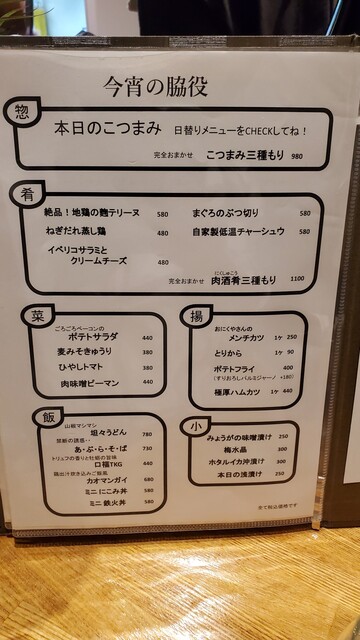 今宵の脇役
惣
本日のこつまみ 日替りメニューをCHECKしてね！
完全おまかせ こつまみ三種もり 980
肴
絶品！地鶏の麹テリーヌ 580
まぐろのぶつ切り 580
ねぎだれ蒸し鶏 480
自家製低温チャーシュウ 580
イベリコサラミと
クリームチーズ 480
にくしゅこう
完全おまかせ 肉酒肴三種もり 1100
菜
ごろごろベーコンの
ポテトサラダ 440
麦みそきゅうり 380
ひやしトマト 380
肉味噌ピーマン 380
揚
おにくやさんの
メンチカツ 1ケ 250
とりから 1ケ 90
ポテトフライ 400
(すりおろしパルミジャーノ +180)
極厚ハムカツ 1ケ 440
飯
山椒マシマシ
坦々うどん 780
禁断の誘惑・・
あ・ぶ・ら・そ・ば 730
トリュフの香りと牡蠣の旨味
口福TKG 440
鶏出汁炊き込みご飯風
カオマンガイ 680
ミニ にこみ丼 580
ミニ 鉄火丼 580
小
みょうがの味噌漬け 250
梅水晶 300
ホタルイカ沖漬け 300
本日の浅漬け 250
全て税込価格です